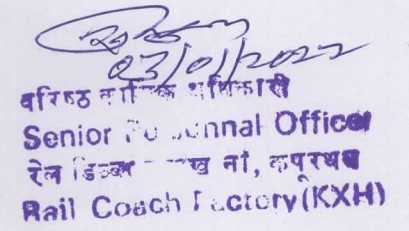 03/01/2022
वरिष्ठ कार्मिक अधिकारी
Senior Officer
रेल डिब्बा नां, कपूरथला
Rail Coach Factory (KXH)